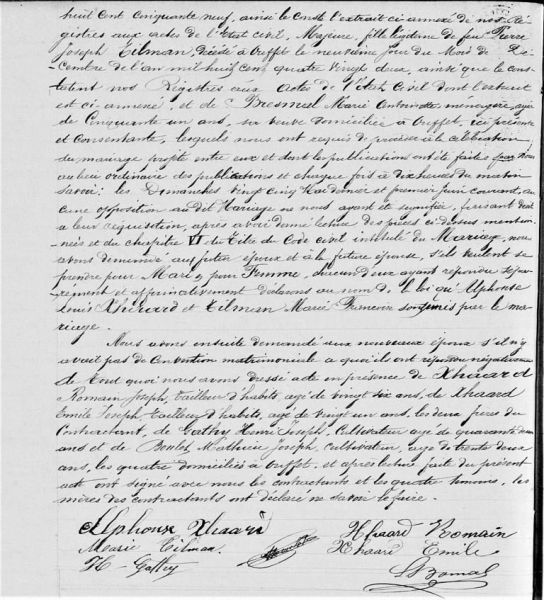 huit cent cinquante neuf, ainsi le conste l'extrait ci-annexé de nos Re-
gistres aux actes de l'Etat civil, Majeure, fille légitime de feu Pierre
Joseph Tilman, décédé à Treffet le neuvième jour du Mois de Dé-
cembre de l'an mil huit cent quatre vingt deux, ainsi que le cons-
tatent nos Registres aux Actes de l'état Civil dont l'extrait
est ci-annexé, et de Marie Antoinette ménagère, agée
de Cinquante un ans, sa veuve domiciliée à Treffet, ici présente
et consentante, lesquels nous ont requis de procéder à la célébration
du mariage projeté entre eux et dont les publications ont été faites par nous
au lieu ordinaire des publications et chaque fois à dix heures du matin
savoir: les Dimanches vingt cinq Mai dernier et premier juin courant, au-
cune opposition audit Mariage ne nous ayant été signifiée, faisant droit
à leur réquisition, après avoir donné lecture des pièces ci-dessus mention-
nées et du chapitre VI du titre du Code civil intitulé du Mariage, nous
avons demandé au futur époux et à la future épouse, s'ils veulent se
prendre pour Mari et pour Femme, chacun d'eux ayant répondu sépa-
rément et affirmativement déclarons au nom de la loi que Alphonse
Louis Xhaard et Tilman Marie sont unis par le ma-
riage.
Nous avons ensuite demandé aux nouveaux époux s'il n'y
avait pas de Convention matrimoniale à quoi ils ont répondu négativement
de tout quoi nous avons dressé acte en présence de Xhaard
Romain Joseph, tailleur d'habits, agé de vingt six ans, de Xhaard
Emile Joseph tailleur d'habits, agé de vingt un ans, les deux frères du
Contractant, de Gathy Henri Joseph, Cultivateur agé de quarante deux
ans et de Boulet Mathieu Joseph, Cultivateur, agé de trente deux
ans, les quatre domiciliés à Treffet. et après lecture faite du présent
acte ont signé avec nous les contractants et les quatre témoins. les
mères des contractants ont déclaré ne savoir le faire.
Alphonse Xhaard Xhaard Romain
Marie Tilman Xhaard Emile
H- Gathy